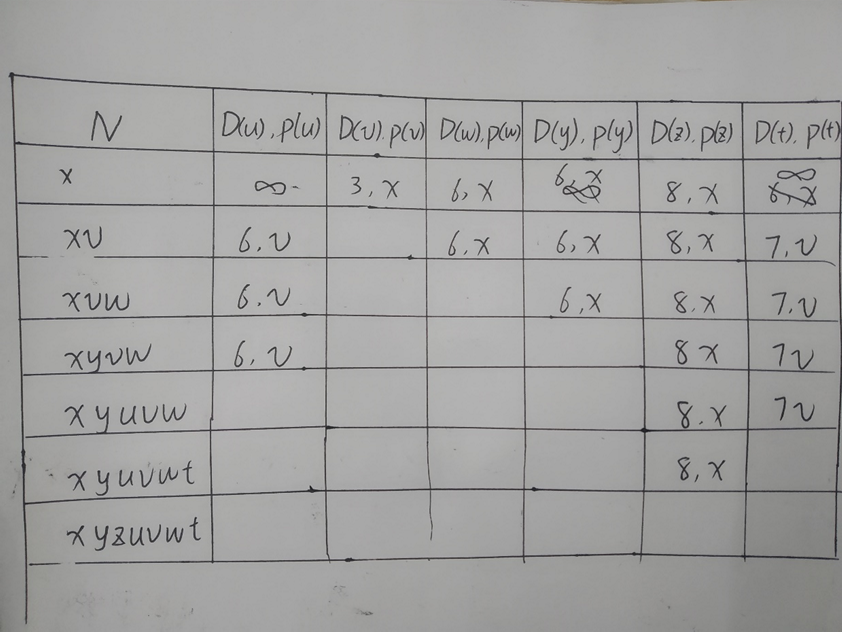 N D(u), p(u) D(v), p(v) D(w), p(w) D(y), p(y) D(z), p(z) D(t), p(t)
x ∞ 3, x 6, x 6, x 8, x ∞
xv 6, v 6, x 6, x 8, x 7, v
xvw 6, v 6, x 8, x 7, v
xyvw 6, v 8 x 7 v
xyuvw 8, x 7 v
xyuvwt 8, x
xyzuvwt